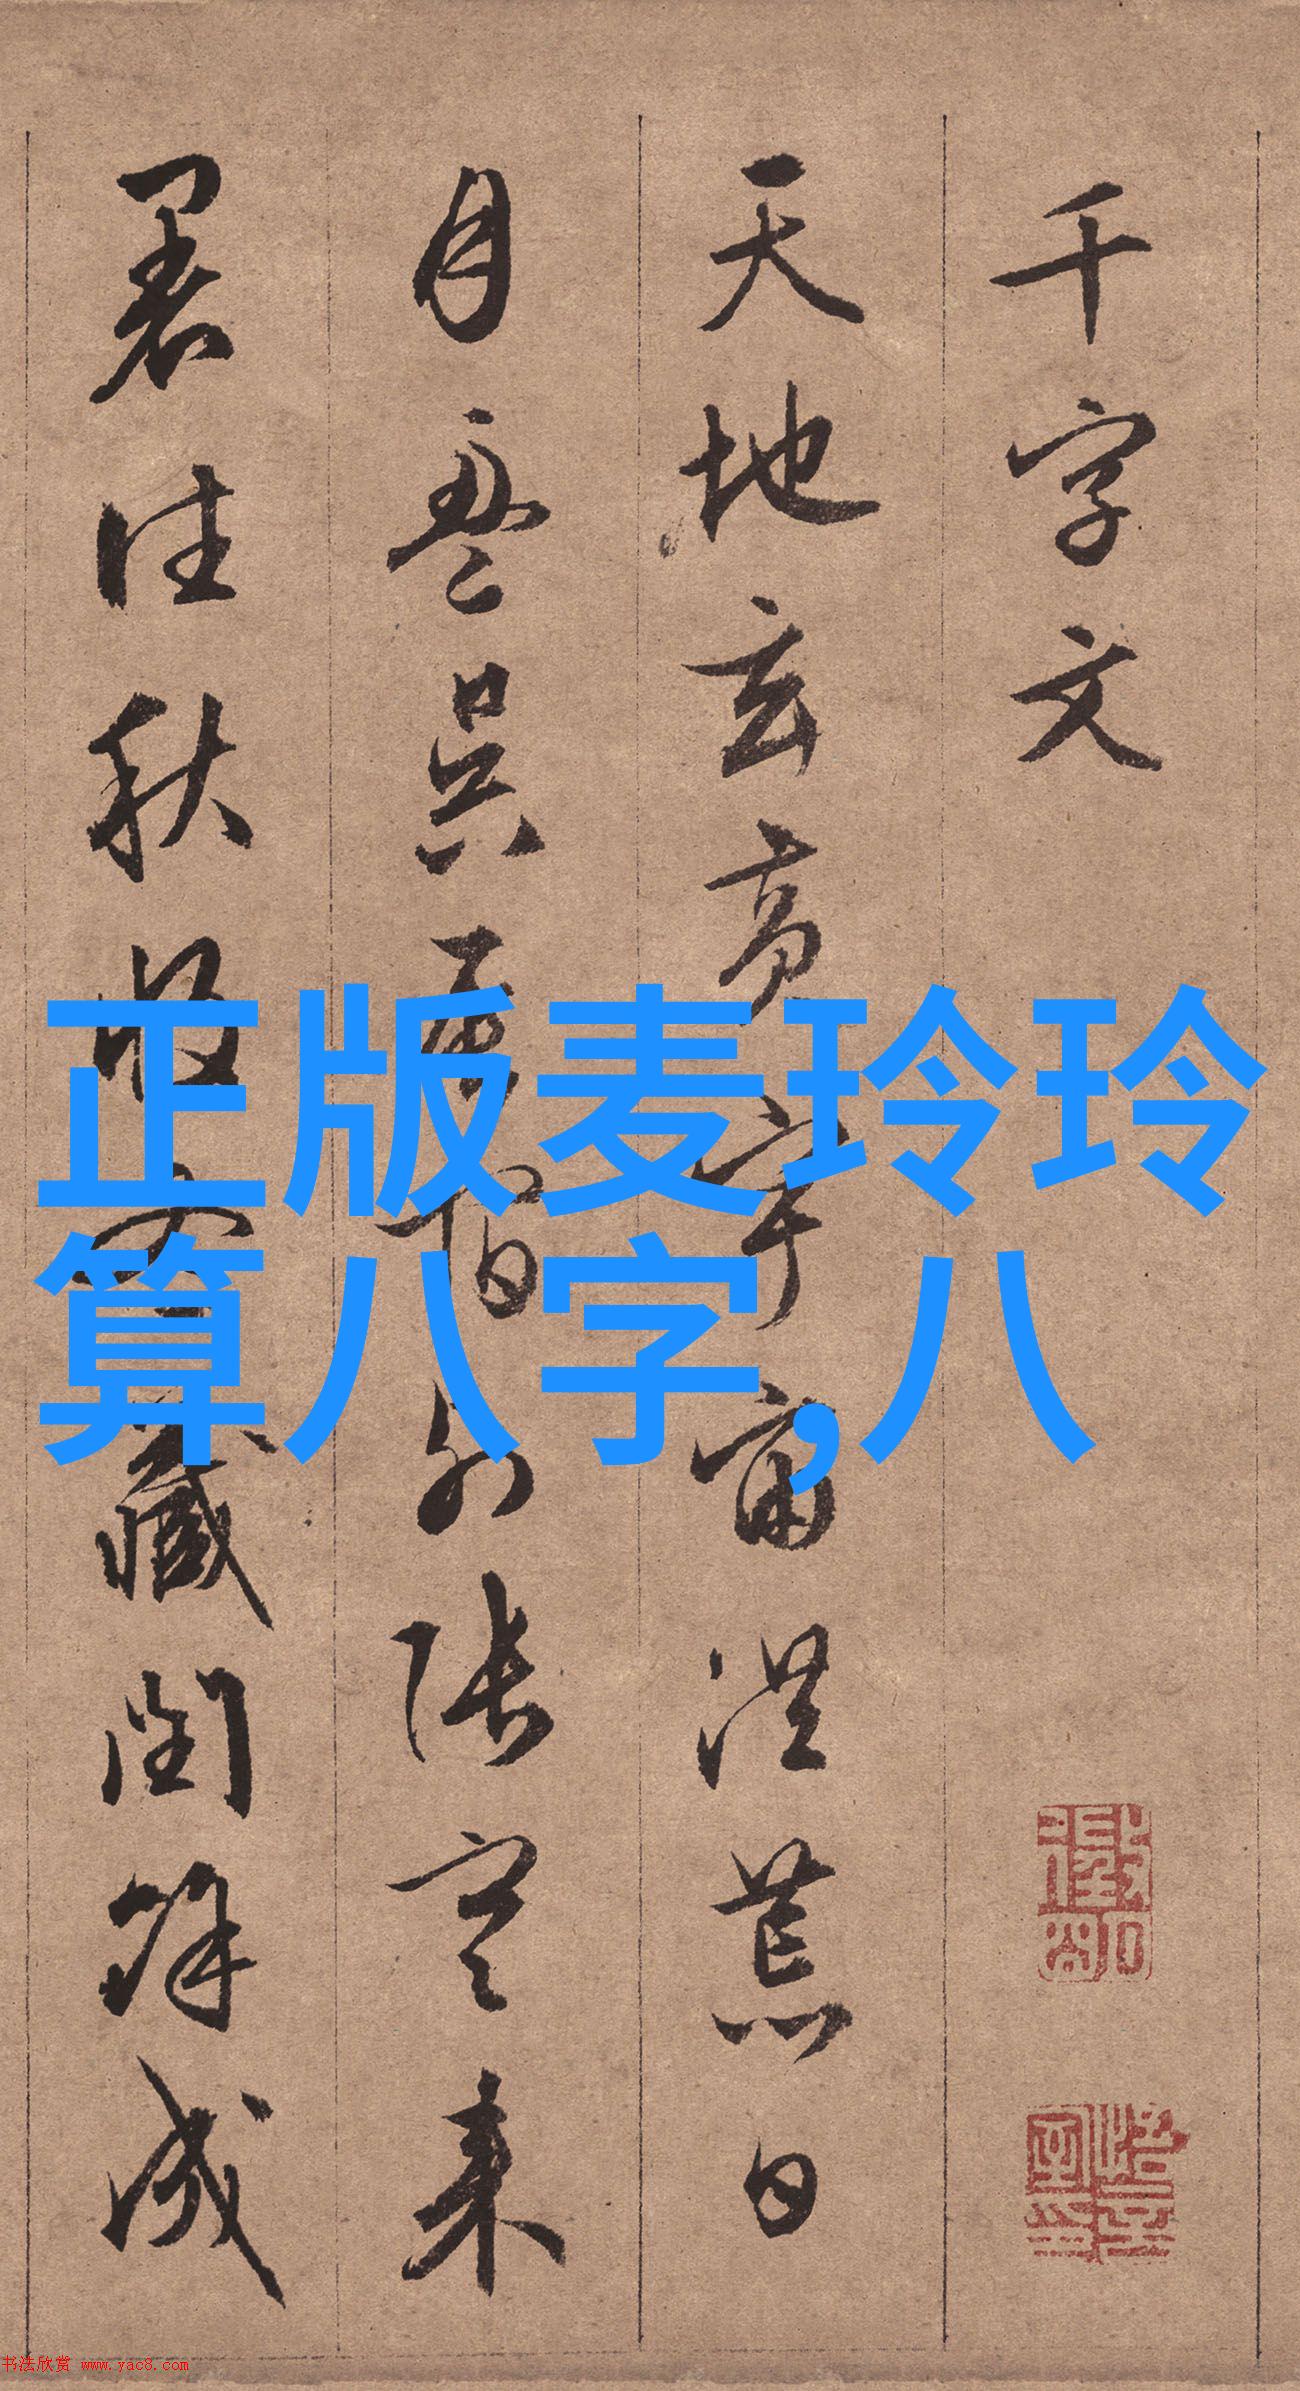 千字文
天地玄黃宇宙洪荒日
月盈昃辰宿列張寒来
暑往秋收冬藏閏餘成
正版麦玲玲
算八字,八
书法欣赏 www.yac8.com